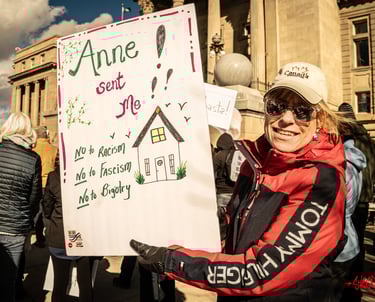 Anne
sent
Me !!
No to Racism
No to Fascism
No to Bigotry
Canada
TOMMY HILFIGER